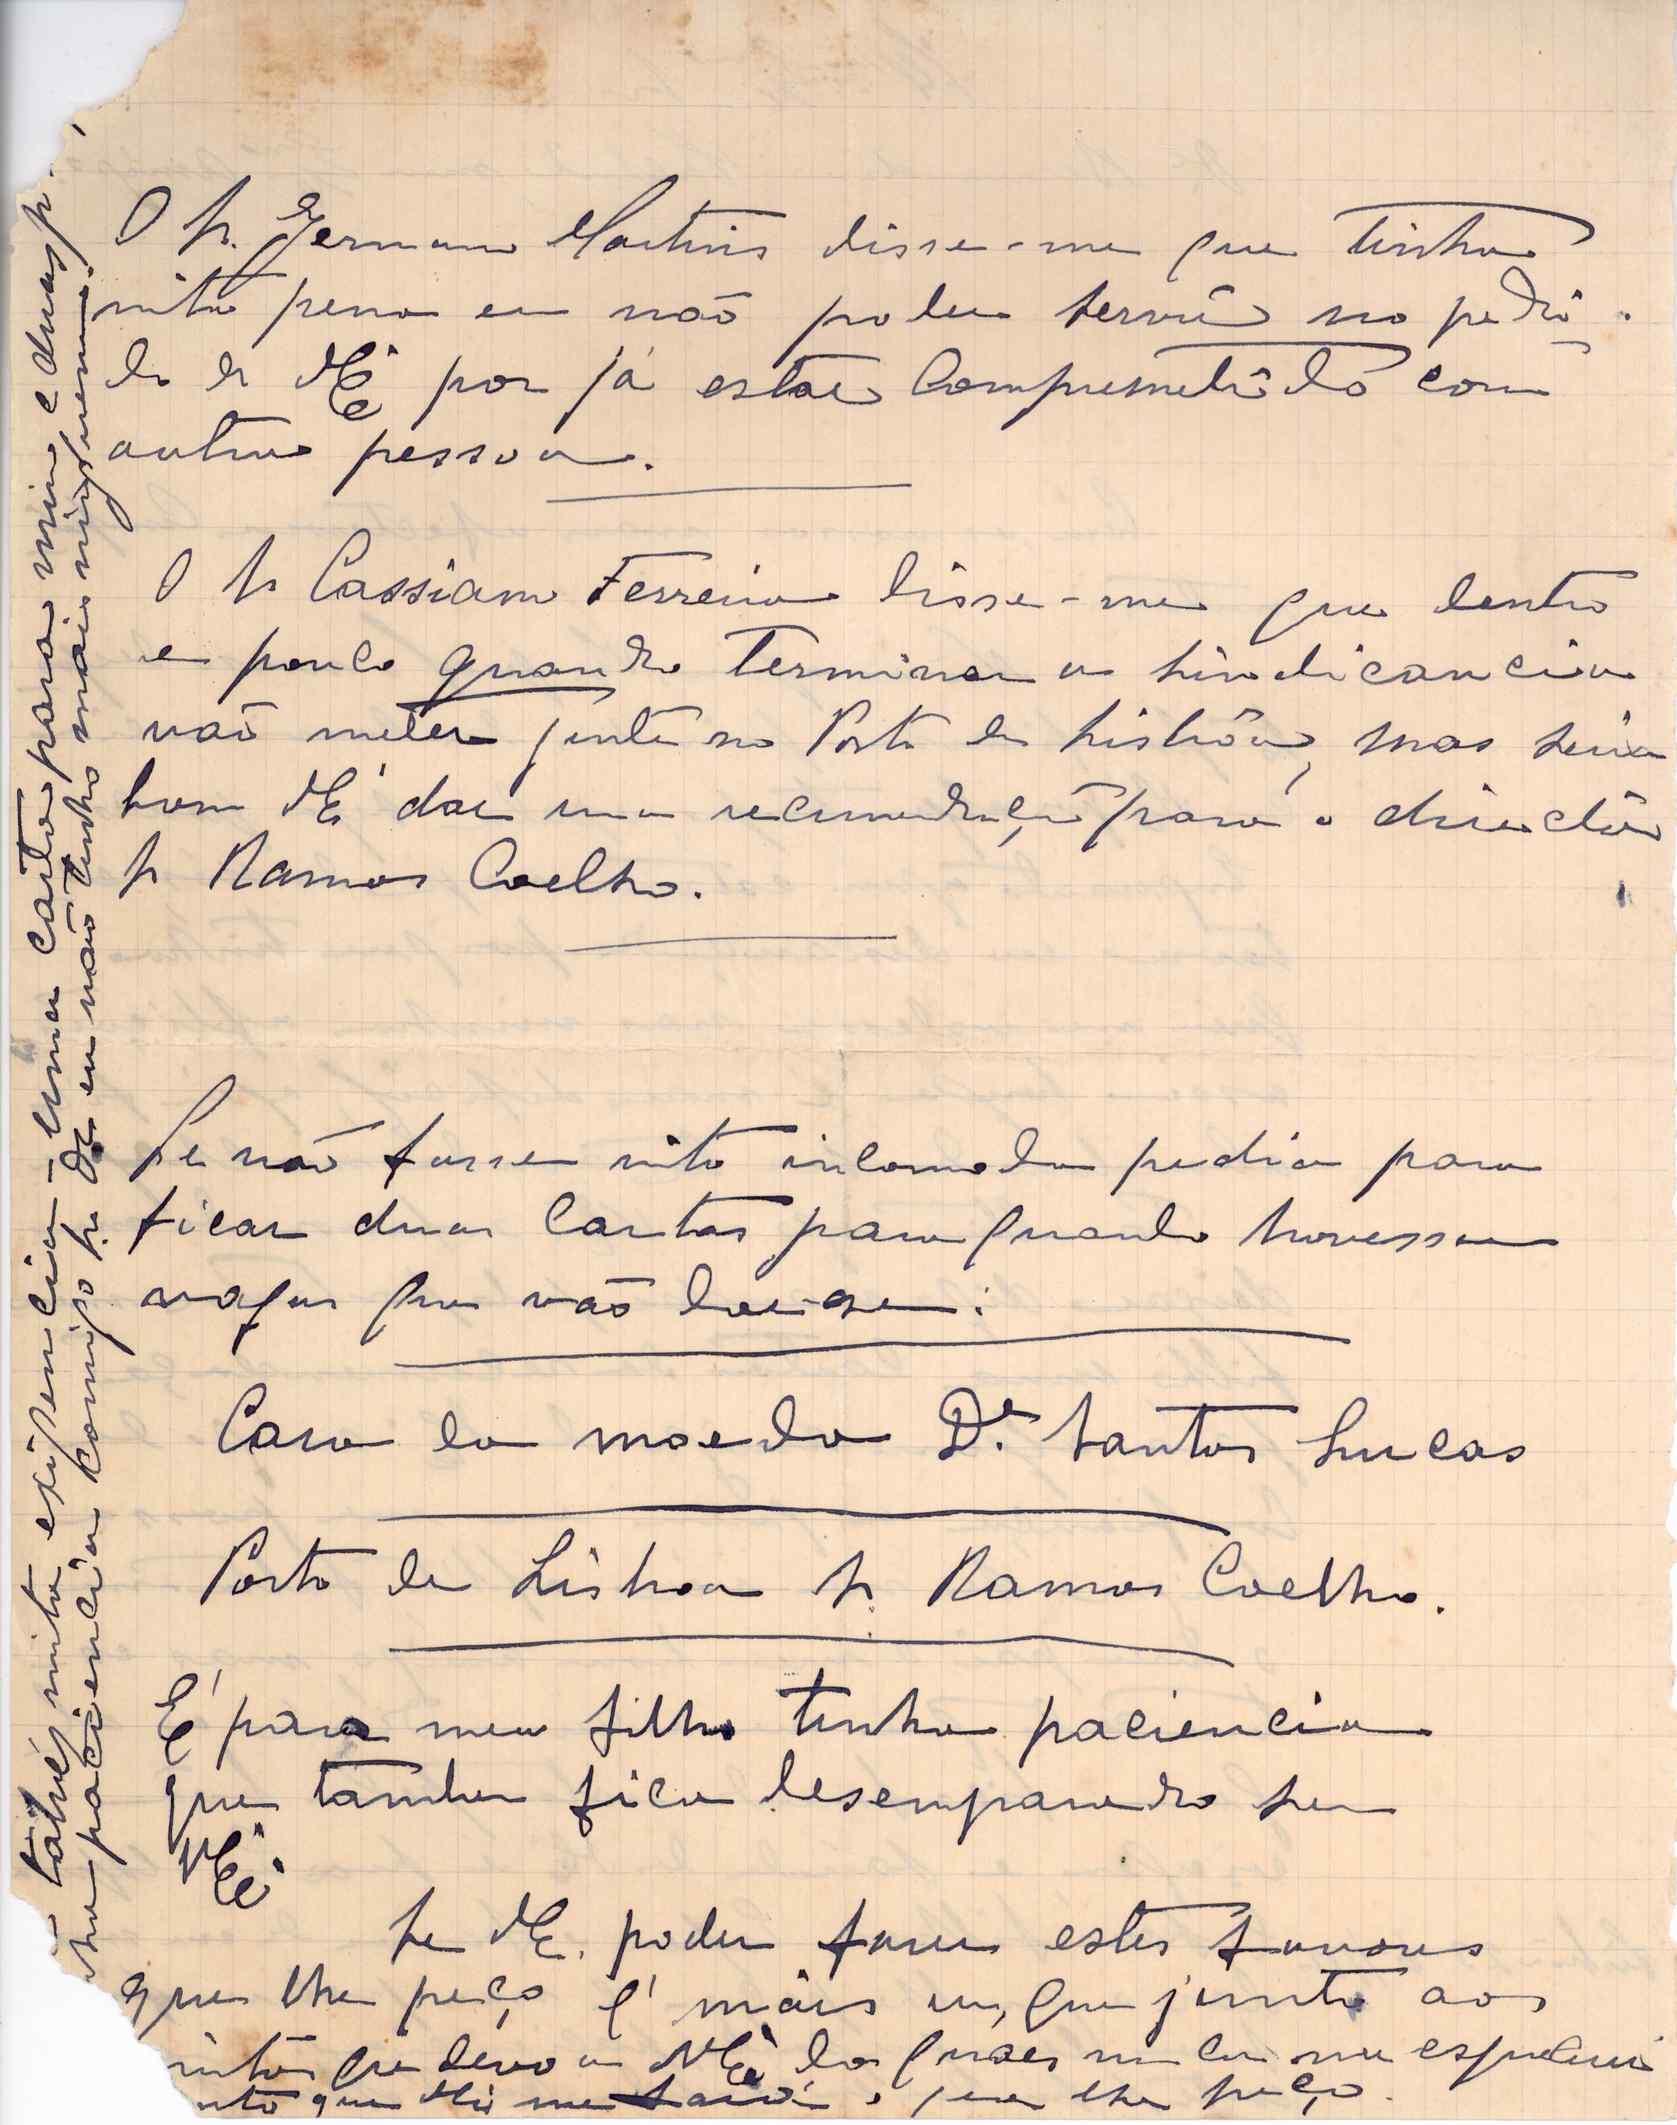 O Sr. Germano Martins disse-me que tinha
muita pena em não poder servir no pedi-
do de V Exª por já estar Comprometido com
outra pessoa.
O Sr Cassiano Ferreira disse-me que dentro
em pouco quando Terminar a sindicancia
vão meter gente no Porto de Lisbôa, mas seria
bom V Exª dar uma recomendação para o director
Sr Ramos Coelho.
Se não fosse mto incomodo pedia para
ficar duas Cartas para quando houvesse
vagas que vão haver:
Casa da moeda Dr. Santos Lucas
Porto de Lisboa Sr. Ramos Coelho.
É para meu filho tenha paciencia
que tambem fica desemparado sem
V Exª
Se V Exª. poder fazer estes favores
que lhe peço é mais um, que junto aos
muitos que devo a V Exª dos quaes nunca me esquecerei
que me fará o que lhe peço.
talvez muita exigencia - uma carta para mim e duas p.
paciencia comigo pr. V Exª eu não tenho mais ninguem.